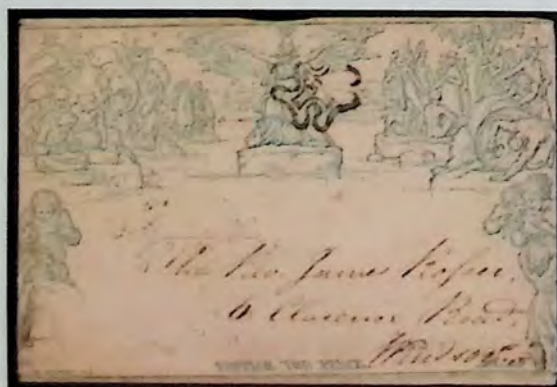 The Rev. James Roper,
6 Clarence
Windsor
POSTAGE TWO PENCE.